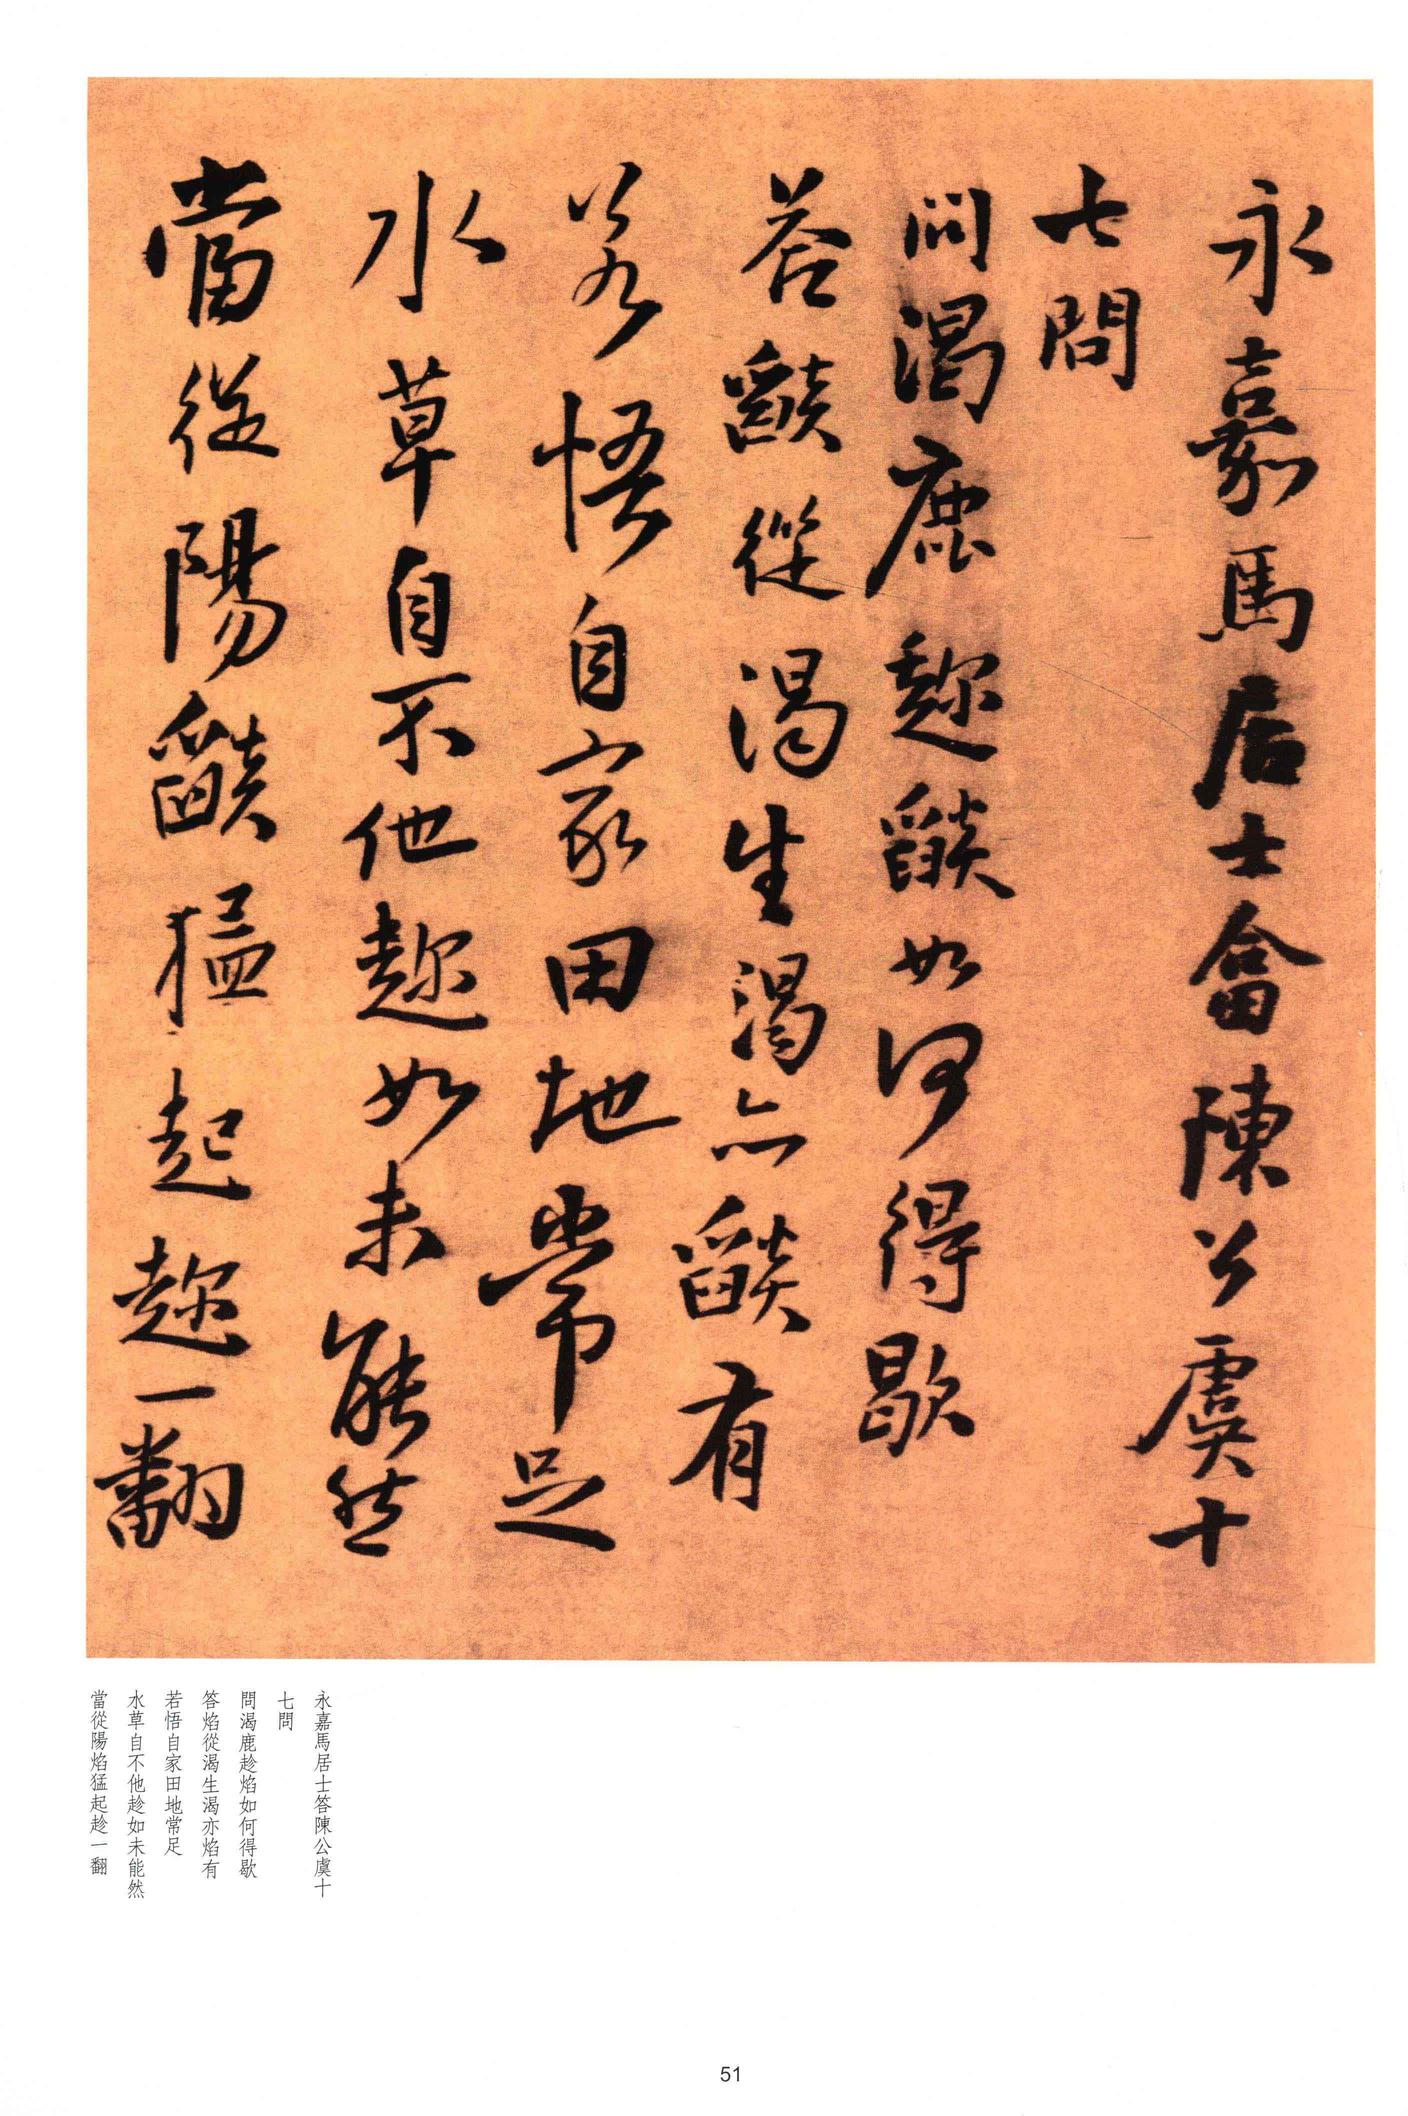 永嘉馬居士畣陳公虞十
七問
問渴鹿趂燄如何得歇
荅燄從渴生渴亦燄有
若悟自家田地常足
水草自不他趂如未能然
當從陽燄猛起趂一翻
永嘉馬居士答陳公虞十
七問
問渴鹿趁焰如何得歇
答焰從渴生渴亦焰有
若悟自家田地常足
水草自不他趁如未能然
當從陽焰猛起趁一翻
51